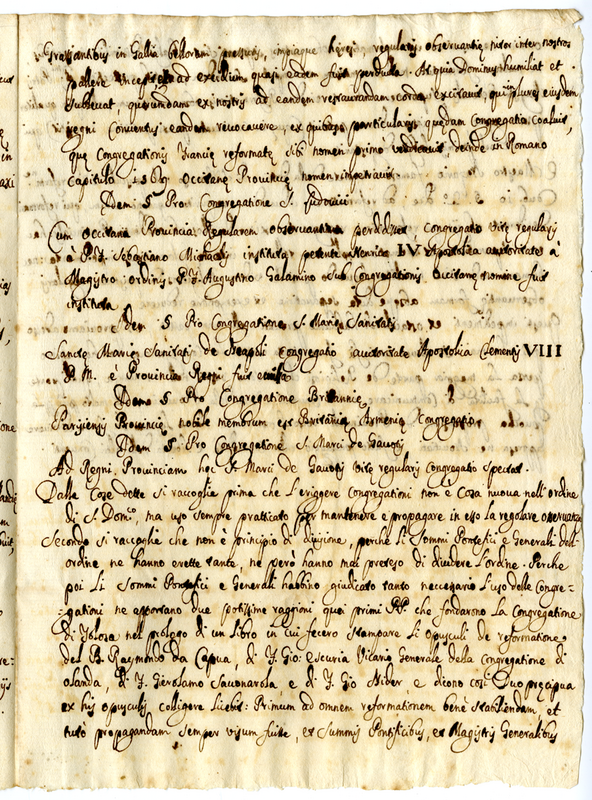 Grassantibus in Gallia bellorum pressuris, impiaque heresi regularis observantiæ nitor inter nostros
pallere incepit et ad excidium quasi eadem fuit perducta. At quia Dominus humiliat et
sublevat, quorundam ex nostris ad eandem restaurandam corda excitavit, qui plures eiusdem
regni Conventus eandem revocavere, ex quibus particularis quædam Congregatio coaluit,
quę Congregationis Francię reformatę sibi nomen primo deinde in Romano
Capitulo 1569 Occitanę Provincię nomen impetravit.
Idem § Pro Congregatione S. Ludovici
Cum Occitana Provincia Regularem observantiam perdidisset, Congregatio vitę regularis
a P. F. Sebastiano Michaelis instituta petente Henrico IV Apostolica auctoritate à
Magistro ordinis P. F. Augustino Galamino sub Congregationis Occitanę nomine fuit
instituta
Idem § Pro Congregatione S. Marię Sanitatis
Sanctę Marię Sanitatis de Neapoli Congregatio auctoritate Apostolica Clementis VIII
P. M. e Provincia Regni fuit
Idem § Pro Congregatione Britannię
Parisiensis Provincię nobile membrum est Britanię Armenię Congregatio
Idem § Pro Congregatione S. Marci de Gavotis
Ad Regni Provinciam hęc S. Marci de Gavotis vitę regularis Congregatio spectat.
Dalle Cose dette si raccoglie prima che l'erigere Congregationi non è Cosa nuova nell'ordine
di S. Domco, ma uso sempre pratticato per mantenere e propagare in esso la regolare osservanza
Secondo si raccoglie che non è principio di divisione, perche li Sommi Pontefici e Generali dell'
ordine ne hanno erette tante, ne però hanno mai preteso di dividere l'ordine. Perche
poi Li Sommi Pontefici e Generali habbino giudicato tanto neccessario l'uso delle Congre=
=gationi ne apportano due potissime raggioni quei primi PP. che fondarono la Congregatione
di Tolosa nel prologo di un libro in cui fecero stampare li opusculi de reformatione
del B. Raymondo da Capua, di F. Gio: Escuria Vicario Generale della Congregatione di
olanda, di F. Gerolamo Savonarola e di F. Gio Nider e dicono così Duo pręcipua
ex his opusculis colligere Licebit: Primum ad omnem reformationem bene stabiliendam, et
tutò propagandam semper visum fuisse, et Summis Pontificibus, et Magistris Generalibus